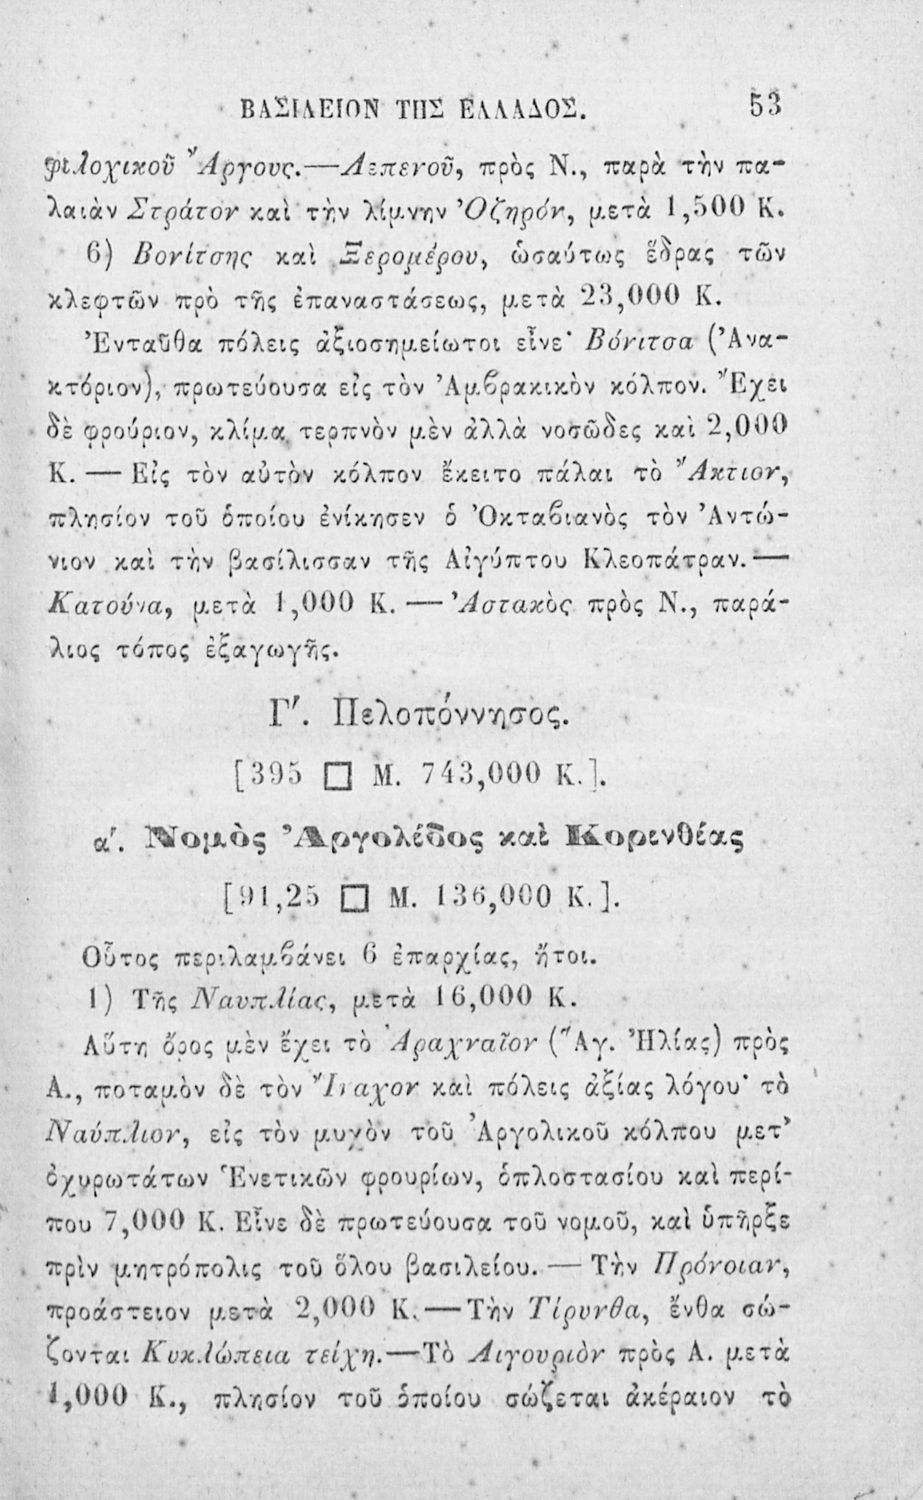 ΒΑΣΙΛΕΙΟΝ ΤΗΣ ΕΛΛΑΔΟΣ. 53
φιλοχικοῦ Ἄργους.—Λεπενοῦ, πρὸς Ν., παρὰ τὴν πα-
λαιὰν Στράτον καὶ τὴν λίμνην Ὀζηρόν, μετὰ 1,500 Κ.
6) Βονίτσης καὶ Ξερομέρου, ὡσαύτως ἕδρας τῶν
κλεφτῶν πρὸ τῆς ἐπαναστάσεως, μετὰ 23,000 Κ.
Ἐνταῦθα πόλεις ἀξιοσημείωτοι εἶνε· Βόνιτσα (Ἀνα-
κτόριον), πρωτεύουσα εἰς τὸν Ἀμβρακικὸν κόλπον. Ἔχει
δὲ φρούριον, κλίμα τερπνὸν μὲν ἀλλὰ νοσῶδες καὶ 2,000
Κ. — Εἰς τὸν αὐτὸν κόλπον ἔκειτο πάλαι τὸ Ἄκτιον,
πλησίον τοῦ ὁποίου ἐνίκησεν ὁ Ὀκταβιανὸς τὸν Ἀντώ-
νιον καὶ τὴν βασίλισσαν τῆς Αἰγύπτου Κλεοπάτραν.—
Κατούνα, μετὰ 1,000 Κ. — Ἀστακὸς πρὸς Ν., παρά-
λιος τόπος ἐξαγωγῆς.
Γʹ. Πελοπόννησος.
[395 □ Μ. 743,000 Κ.].
αʹ. Νομὸς Ἀργολίδος καὶ Κορινθίας
[91,25 □ Μ. 136,000 Κ.].
Οὗτος περιλαμβάνει 6 ἐπαρχίας, ἤτοι.
1) Τῆς Ναυπλίας, μετὰ 16,000 Κ.
Αὕτη ὄρος μὲν ἔχει τὸ Ἀραχναῖον (Ἅγ. Ἠλίας) πρὸς
Α., ποταμὸν δὲ τὸν Ἴναχον καὶ πόλεις ἀξίας λόγου· τὸ
Ναύπλιον, εἰς τὸν μυχὸν τοῦ Ἀργολικοῦ κόλπου μετ'
ὀχυρωτάτων Ἑνετικῶν φρουρίων, ὁπλοστασίου καὶ περί-
που 7,000 Κ. Εἶνε δὲ πρωτεύουσα τοῦ νομοῦ, καὶ ὑπῆρξε
πρὶν μητρόπολις τοῦ ὅλου βασιλείου. — Τὴν Πρόνοιαν,
προάστειον μετὰ 2,000 Κ.—Τὴν Τίρυνθα, ἔνθα σώ-
ζονται Κυκλώπεια τείχη.—Τὸ Λιγουριὸν πρὸς Α. μετὰ
1,000 Κ., πλησίον τοῦ ὁποίου σώζεται ἀκέραιον τὸ